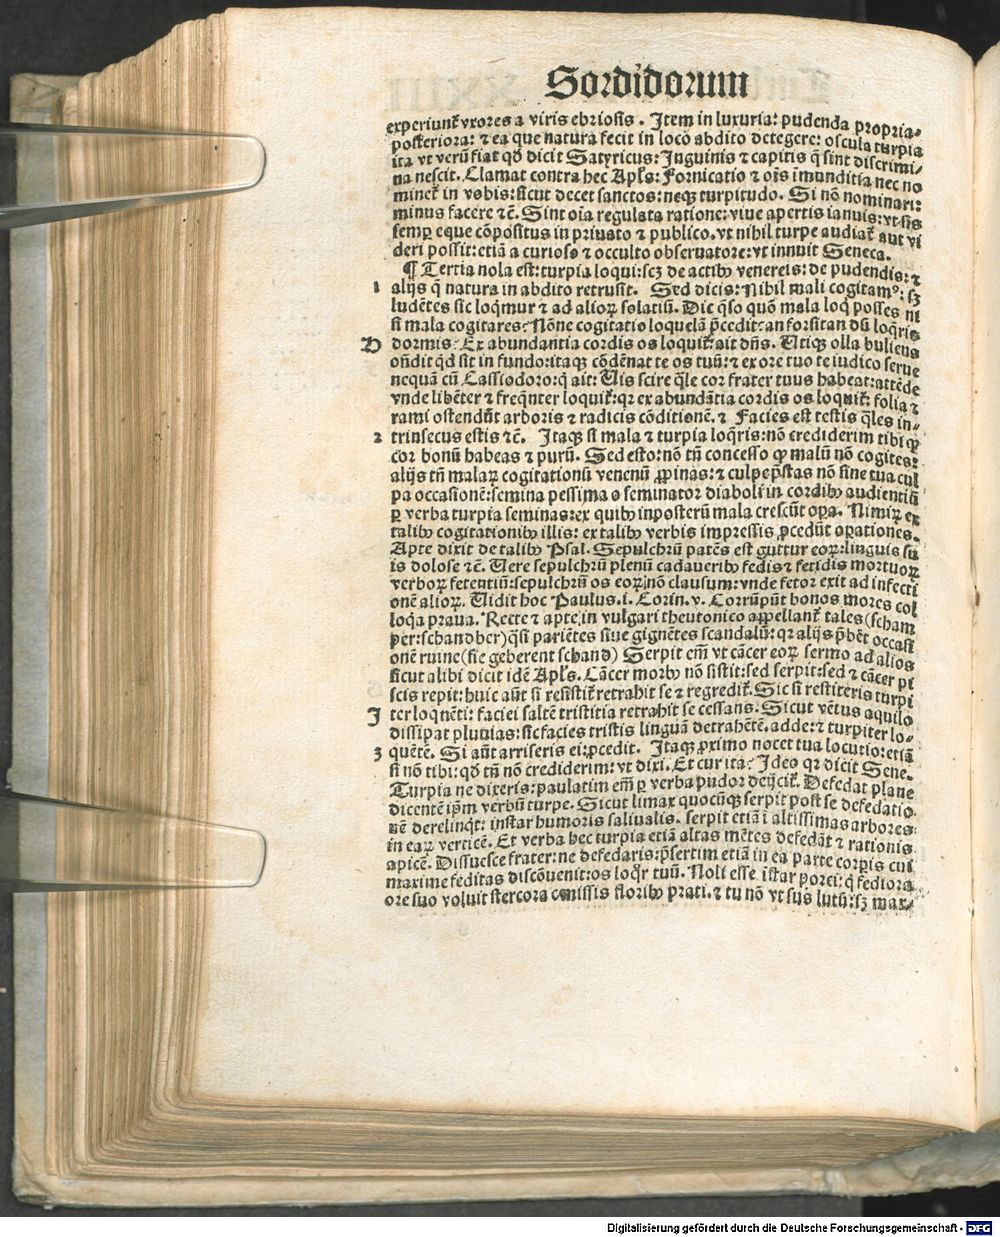 Sordidorum
experiunt̃ vxores a viris ebriosis. Item in luxuria: pudenda propria-
posteriora: ⁊ ea que natura fecit in loco abdito detegere: oscula turpia
ita vt verũ fiat qď dicit Satyricus: Inguinis ⁊ capitis q̃ sint discrimi-
na nescit. Clamat contra hec Apl's: Fornicatio ⁊ oĩs imunditia nec no
minet̃ in vobis: sicut decet sanctos: neqȝ turpitudo. Si nõ nominari:
minus facere ⁊c̃. Sint oĩa regulata ratione: viue apertis ianuis: vt sis
semp̱ eque cõpositus in priuato ⁊ publico. vt nihil turpe audiat̃ aut vi
deri possit: etiã a curioso ⁊ occulto obseruatore: vt innuit Seneca.
¶ Tertia nola est: turpia loqui: scȝ de actibꝰ venereis: de pudendis: ⁊
1 alijs q̃ natura in abdito retrusit. Sed dicis: Nihil mali cogitamꝰ: sȝ
ludẽtes sic loq̃mur ⁊ ad alioꝝ solatiũ. Dic q̃so quõ mala loq̃ posses ni
si mala cogitares: Nõne cogitatio loquelã p̃cedit: an forsitan dũ loq̃ris
D dormis: Ex abundantia cordis os loquit̃: ait dñs. Utiqȝ olla buliens
oñdit qď sit in fundo: itaqȝ cõdẽnat te os tuũ: ⁊ ex ore tuo te iudico serue
nequã cũ Cassiodoro: q̃ ait: Uis scire q̃le cor frater tuus habeat: attẽde
vnde libẽter ⁊ freq̃nter loquit̃: qꝛ ex abundãtia cordis os loquit̃: folia ⁊
rami ostendũt arboris ⁊ radicis cõditionẽ. ⁊ Facies est testis q̃les in-
2 trinsecus estis ⁊c̃. Itaqȝ si mala ⁊ turpia loq̃ris: nõ crediderim tibi ꝙ
cor bonũ habeas ⁊ purũ. Sed esto: nõ tñ concesso ꝙ malũ nõ cogites:
alijs tñ malaꝝ cogitationũ venenũ ꝓpinas: ⁊ culpe p̃stas nõ sine tua cul
pa occasionẽ: semina pessima o seminator diaboli in cordibꝰ audientiũ
ꝑ verba turpia seminas: ex quibꝰ inposterũ mala crescũt oꝑa. Nimiꝝ ex
talibꝰ cogitationibꝰ illis: ex talibꝰ verbis impressis ꝓcedũt oꝑationes.
Apte dixit de talibꝰ Psal. Sepulchrũ patẽs est guttur eoꝝ: linguis su
is dolose ⁊c̃. Uere sepulchrũ plenũ cadaueribꝰ fedis ⁊ fetidis mortuoꝝ
verboꝝ fetentiũ: sepulchrũ os eoꝝ nõ clausum: vnde fetor exit ad infecti
onẽ alioꝝ. Uidit hoc Paulus. i. Corin. v. Corrũpũt bonos mores col
loq̃a praua. Recte ⁊ apte in vulgari theutonico appellant̃ tales (scham
per: schandber) q̃si pariẽtes siue gignẽtes scandalũ: qꝛ alijs p̃bẽt occasi
onẽ ruine (sie geberent schand) Serpit em̃ vt cãcer eoꝝ sermo ad alios
sicut alibi dicit idẽ Apl's. Cãcer morbꝰ nõ sistit: sed serpit: sed ⁊ cãcer pi
scis repit: huic aũt si resistit̃ retrahit se ⁊ regredit̃. Sic si restiteris turpi
J ter loquẽti: faciei saltẽ tristitia retrahit se cessans. Sicut vẽtus aquilo
dissipat pluuias: sic facies tristis linguã detrahẽtẽ. adde: ⁊ turpiter lo-
3 quẽtẽ. Si aũt arriseris ei: ꝓcedit. Itaqȝ ꝓximo nocet tua locutio: etiã
si nõ tibi: qď tñ nõ crediderim: vt dixi. Et cur ita: Ideo qꝛ dicit Sene.
Turpia ne dixeris: paulatim em̃ ꝑ verba pudor deijcit̃. Defedat plane
dicentẽ ip̃m verbũ turpe. Sicut limax quocũqȝ serpit post se defedatio
nẽ derelinq̃t: instar humoris saliualis. serpit etiã i altissimas arbores:
in eaꝝ verticẽ. Et verba hec turpia etiã altas mẽtes defedãt ⁊ rationis
apicẽ. Dissuesce frater: ne defedaris: p̃sertim etiã in ea parte corꝑis cui
maxime feditas discõuenit: os loq̃r tuũ. Noli esse istar porci: q̃ fediora
ore suo voluit stercora omissis floribꝰ prati. ⁊ tu nõ vt sus lutũ: sȝ mar-
Digitalisierung gefördert durch die Deutsche Forschungsgemeinschaft - DFG